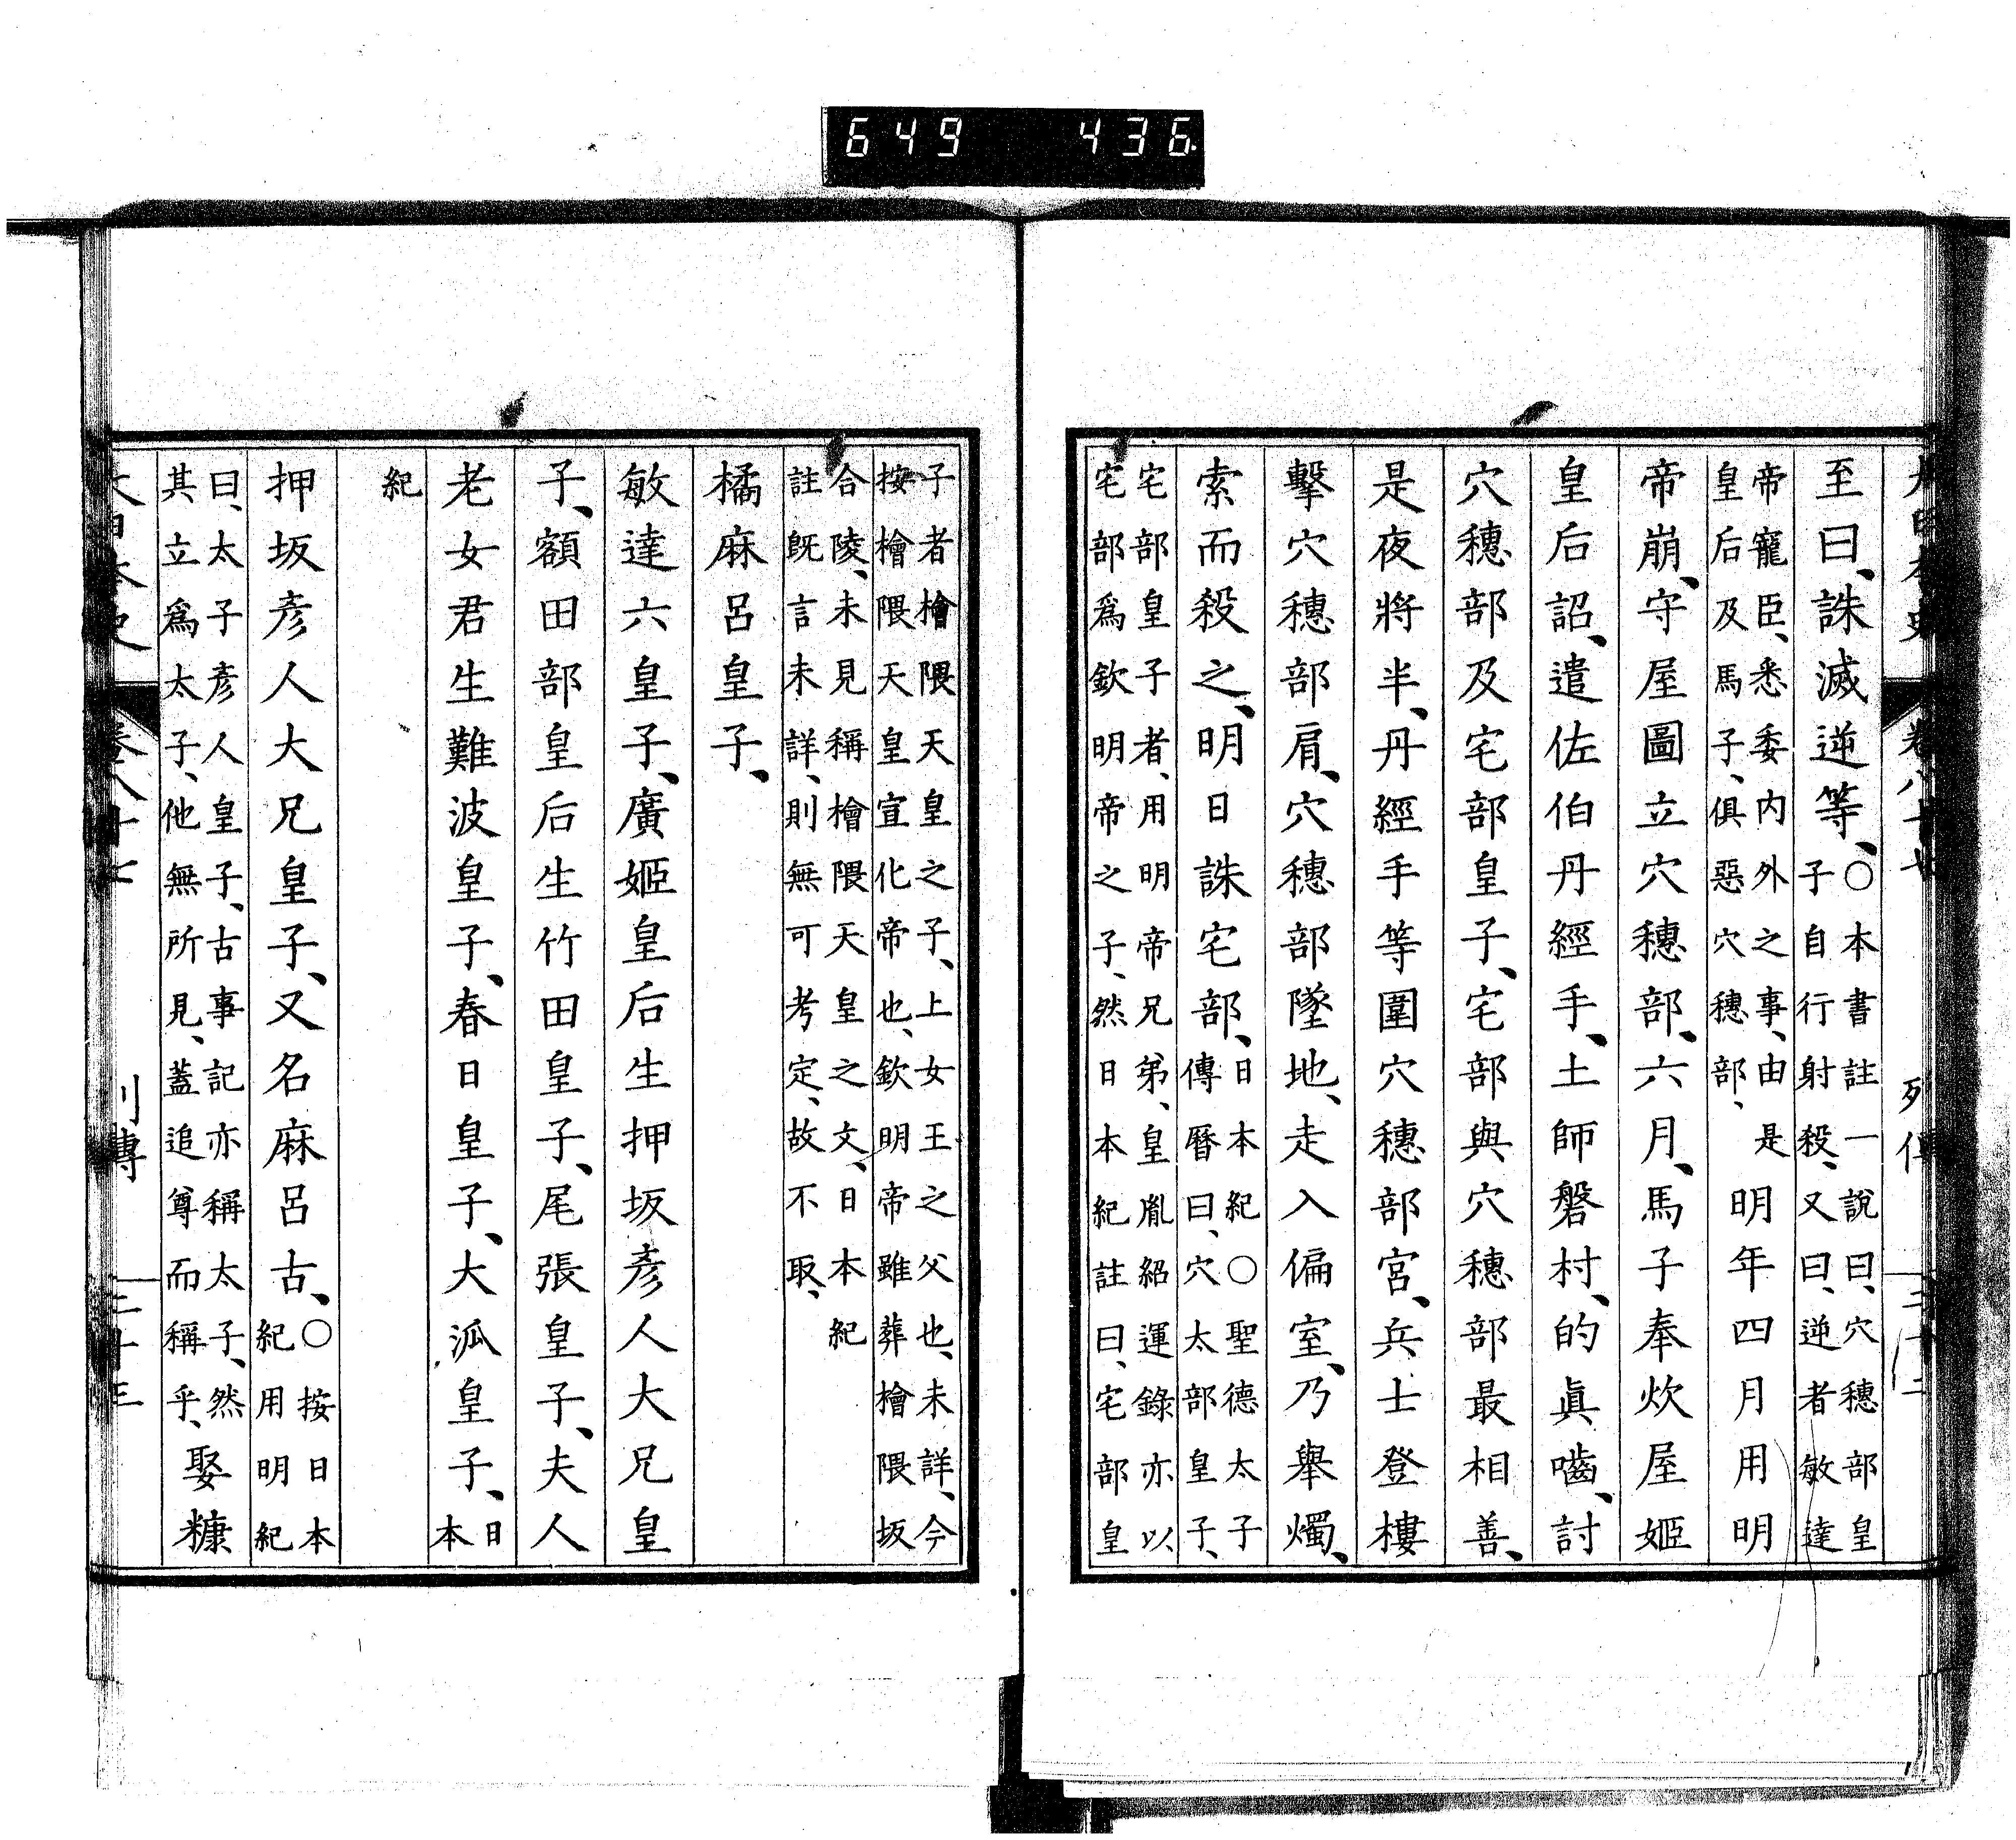 649 436
大日本史 卷八十七 列傳 三十二
至曰、誅滅逆等、○本書註一說曰、穴穗部皇子自行射殺、又曰、逆者敏達
帝寵臣、悉委內外之事、由是皇后及馬子、俱惡穴穗部、明年四月用明
帝崩、守屋圖立穴穗部、六月、馬子奉炊屋姬
皇后詔、遣佐伯丹經手、土師磐村、的眞嚙、討
穴穗部及宅部皇子、宅部與穴穗部最相善、
是夜將半、丹經手等圍穴穗部宮、兵士登樓
擊穴穗部肩、穴穗部墜地、走入偏室、乃舉燭、
索而殺之、明日誅宅部、日本紀○聖德太子傳曆曰、穴太部皇子、
宅部皇子者、用明帝兄弟、皇胤紹運錄亦以宅部爲欽明帝之子、然日本紀註曰、宅部皇
子者檜隈天皇之子、上女王之父也、未詳、今按檜隈天皇宣化帝也、欽明帝雖葬檜隈坂
合陵、未見稱檜隈天皇之文、日本紀註既言未詳、則無可考定、故不取、
橘麻呂皇子、
敏達六皇子、廣姬皇后生押坂彥人大兄皇
子、額田部皇后生竹田皇子、尾張皇子、夫人
老女君生難波皇子、春日皇子、大派皇子、日本
紀
押坂彥人大兄皇子、又名麻呂古、○按日本紀用明紀
曰、太子彥人皇子、古事記亦稱太子、然其立爲太子、他無所見、蓋追尊而稱乎、娶糠
大日本史 卷八十七 列傳 三十三